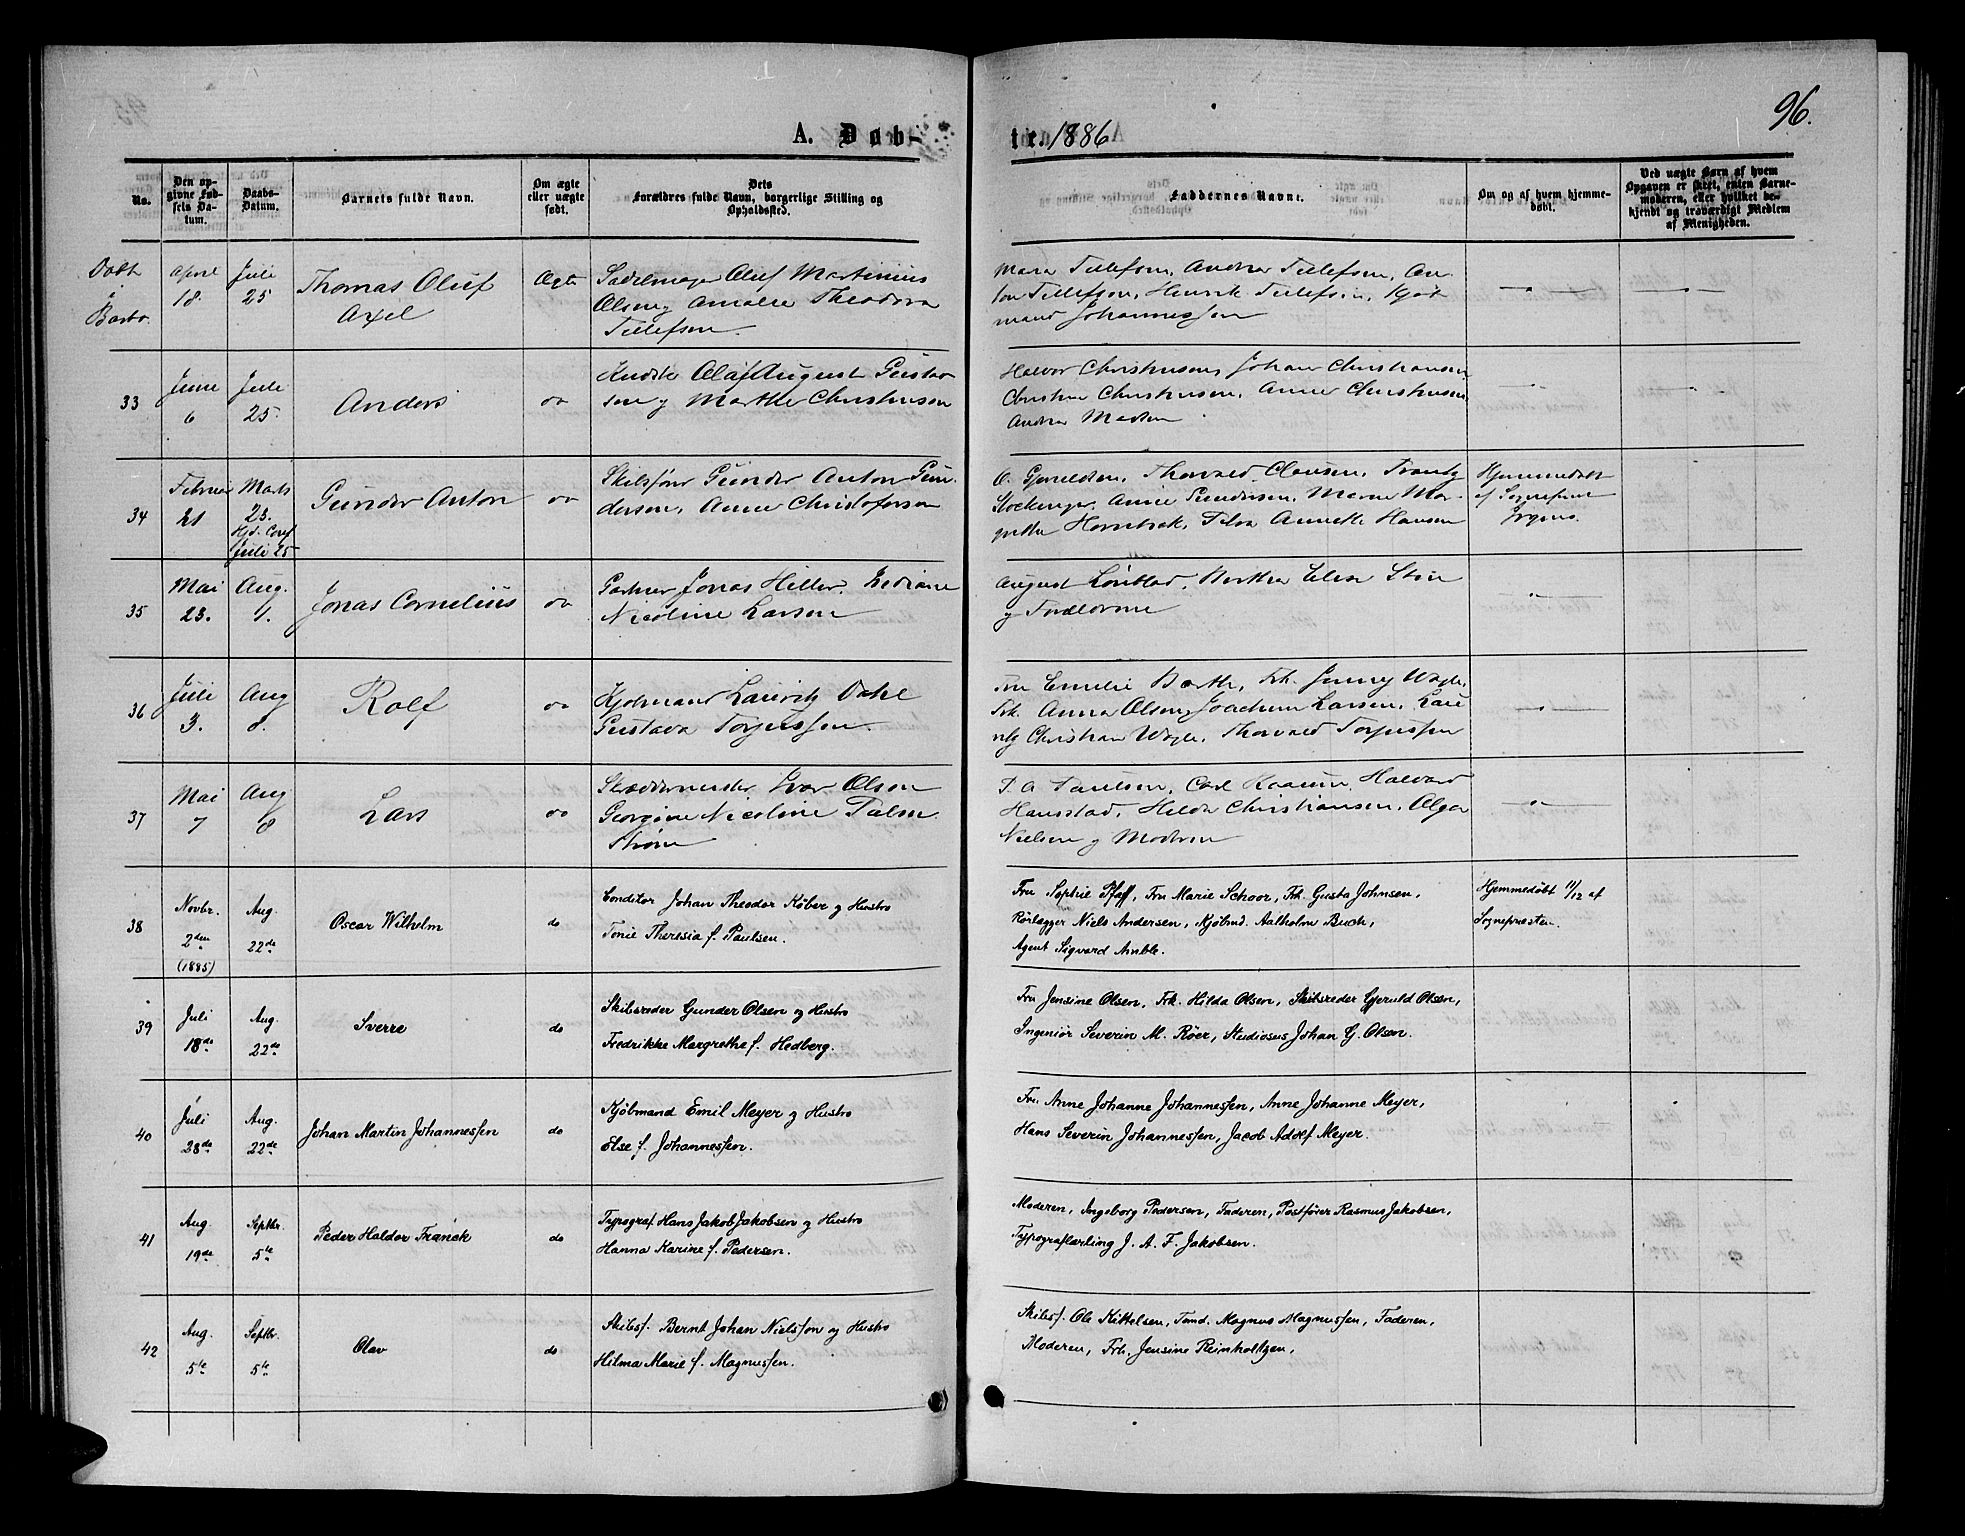 96.
A. Døb-
te. 1886
No.
Den op-
givne Fød-
sels Da-
tum.
Daabs-
Datum.
Barnets fulde Navn.
Om ægte
eller uægte
født.
Dets
Forældres fulde Navn, borgerlige Stilling og
Opholdssted.
Faddernes Navne.
Om og af hvem hjemme-
døbt.
Ved uægte Børn af hvem
Opgaven er skeet, enten Barne-
moderen, eller hvilket be-
kjendt og troværdigt Medlem
af Menigheden.
Døbt
i
April
18.
Juli
25
Thomas Oluf
Axel
Ægte
Sadelmager Oluf Martinius
Olsen og Amalie Theodora
Tellefsen.
Tellefsen, Andrea Tellefsen, An-
ton Tellefsen, Henrik Tellefsen, Kjøb
mand Johannessen
33
Juni
6
Juli
25.
Anders
do
Kudsk Olaf August Gustav
sen og Marthe Christensen
Halvor Christensen, Johan Christiansen
Christine Christensen, Anne Christensen
Andrea Madsen
34
Februar
21
Marts
23.
Juli 25
Gunder Anton
do
Skibsfører Gunder Anton Gun
dersen, Anne Christofersen
Thorvald Clausen,
Anne Gundersen, Maren Mar-
grethe Annette Hansen
Hjemmedøbt
af Sognepræst
35
Mai
23.
Aug.
1.
Jonas Cornelius
do
Gartner Jonas Hiller,
Nicoline Larsen
August Berthea
og Forældrene
36
Juli
3.
Aug
8.
Rolf
do
Kjøbmand Lauritz Dahl
Gustava Torjussen.
Fru Emilie Barth, Frk. Jenny Wagle,
Frk. Anna Olsen, Joachim Larsen, Lau
ritz Christian Wagle, Thorvald Torjussen
37
Mai
7
Aug
8
Lars
do
Skræddermester Ivar Olsen
Georgine Nicoline Palm
Strøm
P. A. Paulsen, Carl Halvard
Hansstad, Hilda Christiansen, Olga
Nielsen og Modren
38
Novbr.
2den
(1885)
Aug.
22de
Oscar Wilhelm
do
Conditor Johan Theodor Køber og Hustro
Tonie Theresia f. Paulsen.
Fru Sophie Pfaff, Fru Marie Schoor, Frk. Gusta Johnsen,
Rørlægger Niels Andersen, Kjøbmd. Aalholm Buch,
Agent Sigvard Amble.
Hjemmedøbt 11/12 af
Sognepresten.
39
Juli
18de
Aug.
22de
Sverre
do
Skibsreder Gunder Olsen og Hustro
Fredrikke Margrethe f. Hedberg.
Fru Jensine Olsen, Frk. Hilda Olsen, Skibsreder Gjeruld Olsen,
Ingeniør Severin M. Røer, Studiosus Johan G. Olsen.
40
Juli
28de
Aug.
22de
Johan Martin Johannessen
do
Kjøbmand Emil Meyer og Hustro
Else f. Johannessen.
Fru Anne Johanne Johannessen, Anne Johanne Meyer,
Hans Severin Johannessen, Jacob Adolf Meyer.
41
Aug.
19de
Septbr.
5te
Peder Haldor Franck
do
Typograf Hans Jakob Jakobsen og Hustro
Hanna Karine f. Pedersen.
Moderen, Ingeborg Pedersen, Faderen, Postfører Rasmus Jakobsen,
Typograflærling J. A. F. Jakobsen.
42
Aug.
5te
Septbr.
5te
Olav
do
Skibsf. Bernt Johan Nielsson og Hustro
Hilma Marie f. Magnussen.
Skibsf. Ole Kittelsen, Tømd. Magnus Magnussen, Faderen,
Moderen, Frk. Jensine Reinholtzen,